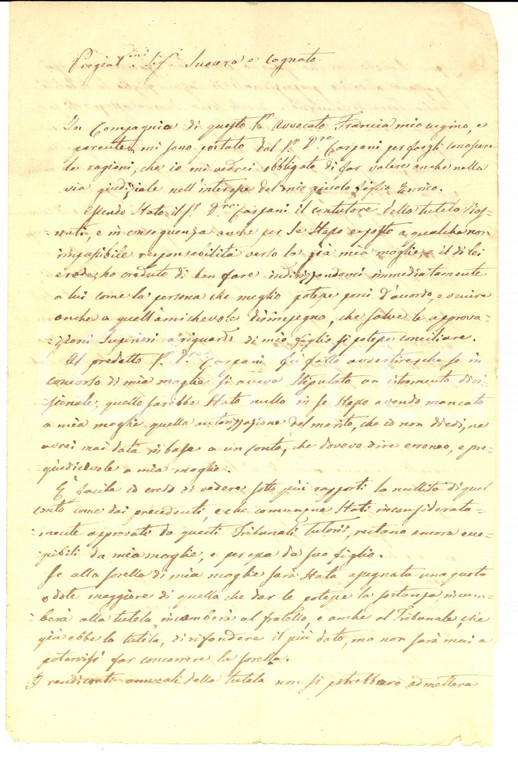 Pregiat.mi Sig.i Suocera e Cognato
In Compagnia di questo Sr. Avvocato Francia mio cugino, e
parente, mi sono portato dal Sr. Dre. Carpani per fargli conoscere
le ragioni, che io mi vedrei obbligato di far valere anche nella
via giudiziale nell'interesse del mio piccolo figlio Enrico.
Essendo stato il Sr. Dre. Carpani il contutore della tutela
e in conseguenza anche per se stesso esposto a qualche non
impassibile responsabilità verso la già mia moglie, e il di lei
erede, ho creduto di ben fare indirizzandomi immediatamente
a lui come la persona che meglio potesse porci d'accordo, e venire
anche a quell'amichevole disimpegno, che salve le approva-
zioni Superiori a riguardo di mio figlio si potesse conciliare.
Al predetto Sr. Dre. Carpani fatto avvertire che se in
concorso di mia moglie si aveva stipulato un istromento divi-
sionale, quello sarebbe stato nullo in se stesso avendo mancato
a mia moglie quella autorizzazione del marito, che io non diedi, ne
avrei mai data di base a un conto, che dovevo dire erroneo, e pre-
giudicevole a mia moglie.
E' facile io credo di vedere sotto più rapporti la nullità di quel
conto come dei precedenti, e che comunque stati inconsiderata-
mente approvati da questi Tribunali Tutorj, restano ancora ecce-
pibili da mia moglie, e per essa da suo figlio.
Se alla sorella di mia moglie sarà stata assegnata una
dote maggiore di quella che dar le potesse la sostanza incum-
berà alla tutela, incomberà al fratello, e anche al Tribunale che
già ebbe la tutela, di rifondere il più dato, ma non sarà mai a
potervisi far concorrere la sorella.
I rendiconti annuali della tutela non si potrebbero admettere